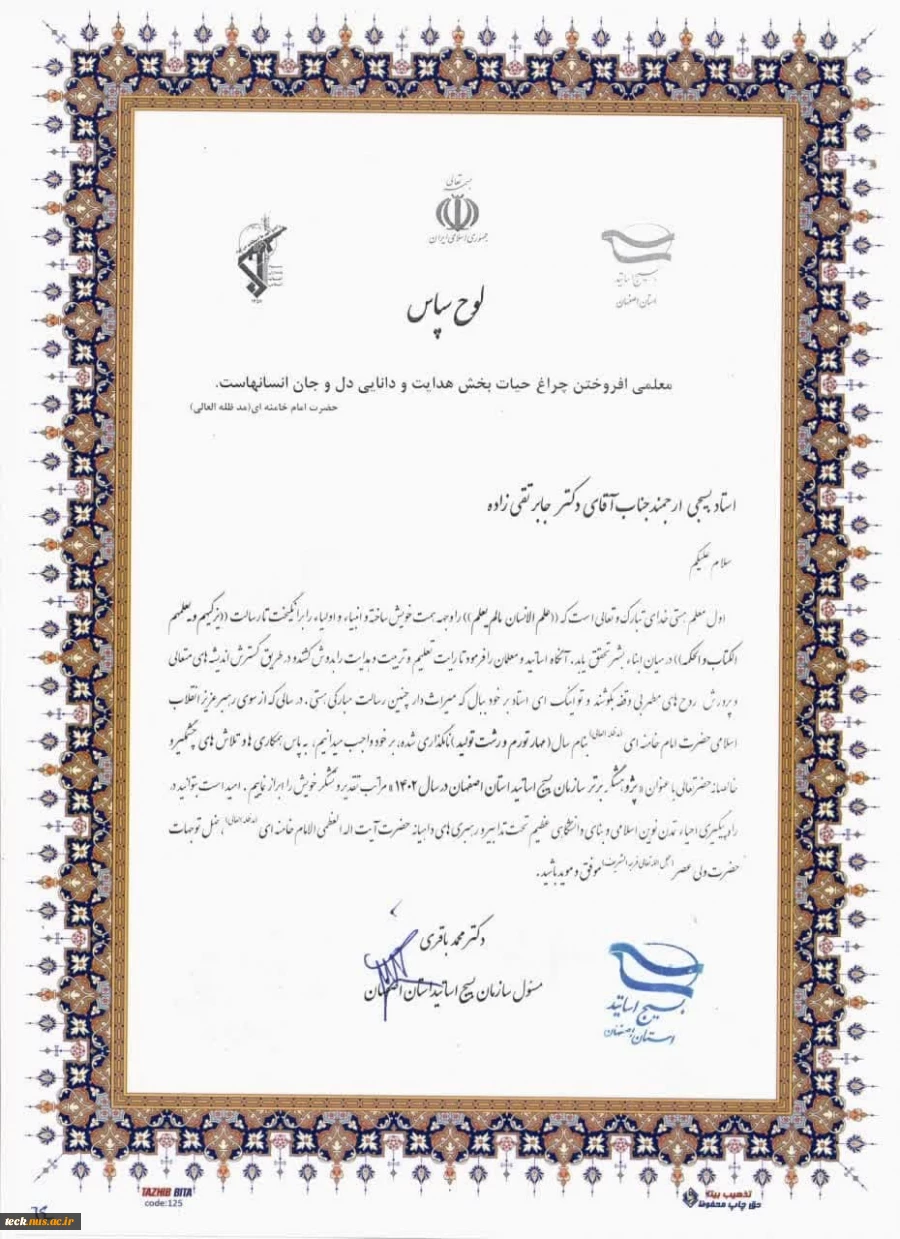 بسمه تعالی
جمهوری اسلامی ایران
بسیج اساتید
استان اصفهان
لوح سپاس
معلمی افروختن چراغ حیات بخش هدایت و دانایی دل و جان انسانهاست.
حضرت امام خامنه ای(مد ظله العالی)
استاد بسیجی ارجمند جناب آقای دکتر جابر تقی زاده
سلام علیکم
اول معلم هستی خدای تبارک و تعالی است که ((علم الانسان مالم یعلم)) را وجهه همت خویش ساخته و انبیاء و اولیاء را برانگیخت تا رسالت ((یزکیهم و یعلمهم
الکتاب و الحکمه)) در میان ابناء بشر تحقق یابد. آنگاه اساتید و معلمان را فرمود تا رایت تعلیم و تربیت و هدایت را بدوش کشند و در طریق گسترش اندیشه های متعالی
و پرورش روح های مطهر بی وقفه بکوشند و تو اینک ای استاد بر خود ببال که میراث دار چنین رسالت مبارکی هستی. در سالی که از سوی رهبر عزیز انقلاب
اسلامی حضرت امام خامنه ای (مدظله العالی) بنام سال (مهار تورم و رشت تولید) نامگذاری شده، بر خود واجب میدانیم، به پاس همکاری ها و تلاش های چشمگیر و
خالصانه حضرتعالی با عنوان «پژوهشگر برتر سازمان بسیج اساتید استان اصفهان در سال ۱۴۰۲» مراتب تقدیر و تشکر خویش را ابراز نماییم. امید است بتوانید در
راه پیگیری احیاء تمدن نوین اسلامی و بنای دانشگاهی عظیم تحت تدابیر و رهبری های داهیانه حضرت آیت اله العظمی الامام خامنه ای (مدظله العالی)، ظل توجهات
حضرت ولی عصر (عجل الله تعالی فرجه الشریف) موفق و موید باشید.
دکتر محمد باقری
مسئول سازمان بسیج اساتید استان اصفهان
بسیج اساتید
استان اصفهان
TAZHIB BITA
code:125
تذهیب بیتا
حق چاپ محفوظ
teck.nus.ac.ir